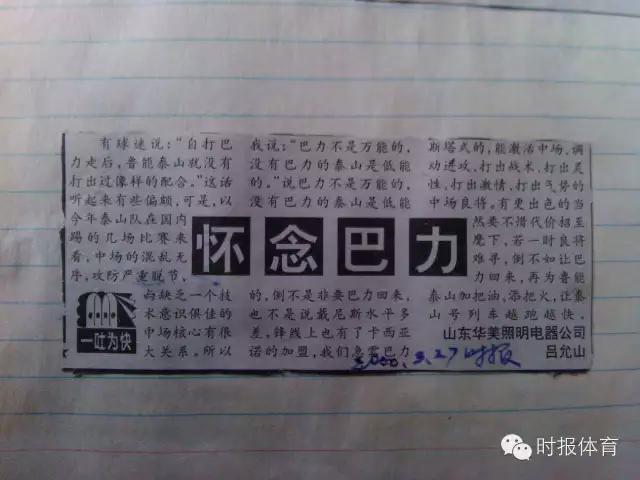 怀念巴力
有球迷说：“自打巴
力走后，鲁能泰山就没有
打出过像样的配合。”这话
听起来有些偏颇，可是，以
今年泰山队在国内
踢的几场比赛来
看，中场的混乱无
序，攻防严重脱节、
与缺乏一个技
术意识俱佳的
中场核心有很
大关系。所以
我说：“巴力不是万能的，
没有巴力的泰山是低能
的。”说巴力不是万能的，
没有巴力的泰山是低能
的，倒不是非要巴力回来，
也不是说戴尼斯水平多
差，锋线上也有了卡西亚
诺的加盟，我们急需巴力
斯塔式的，能激活中场，调
动进攻，打出战术，打出灵
性，打出激情，打出气势的
中场良将。有更出色的当
然要不惜代价招至
麾下，若一时良将
难寻，倒不如让巴
力回来，再为鲁能
泰山加把油，添把火，让泰
山号列车越跑越快。
山东华美照明电器公司
吕允山
一吐为快
2000.3.27时报
时报体育